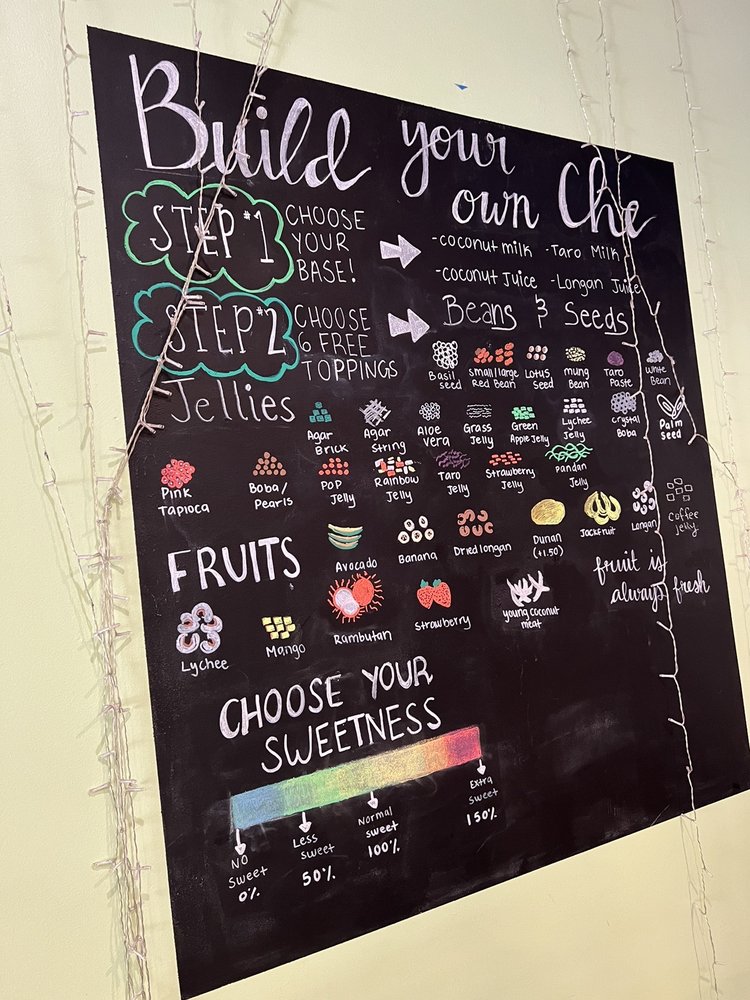 Build your
own Che
STEP #1
CHOOSE
YOUR
BASE!
-coconut milk -Taro Milk
-coconut Juice -Longan Juice
STEP #2
CHOOSE
6 FREE
TOPPINGS
Beans & Seeds
Basil
seed
small/large
Red Bean
Lotus
Seed
mung
Bean
Taro
Paste
White
Bean
Jellies
Agar
Brick
Agar
String
Aloe
Vera
Grass
Jelly
Green
Apple Jelly
Lychee
Jelly
Crystal
Boba
Palm
Seed
Pink
Tapioca
Boba/
Pearls
POP
Jelly
Rainbow
Jelly
Taro
Jelly
Strawberry
Jelly
Pandan
Jelly
FRUITS
Avocado
Banana
Dried longan
Durian
(+1.50)
Jackfruit
Longan
Coffee
jelly
Lychee
Mango
Rambutan
Strawberry
young coconut
meat
fruit is
always fresh
CHOOSE YOUR
SWEETNESS
NO
Sweet
0%
Less
sweet
50%
Normal
sweet
100%
Extra
sweet
150%